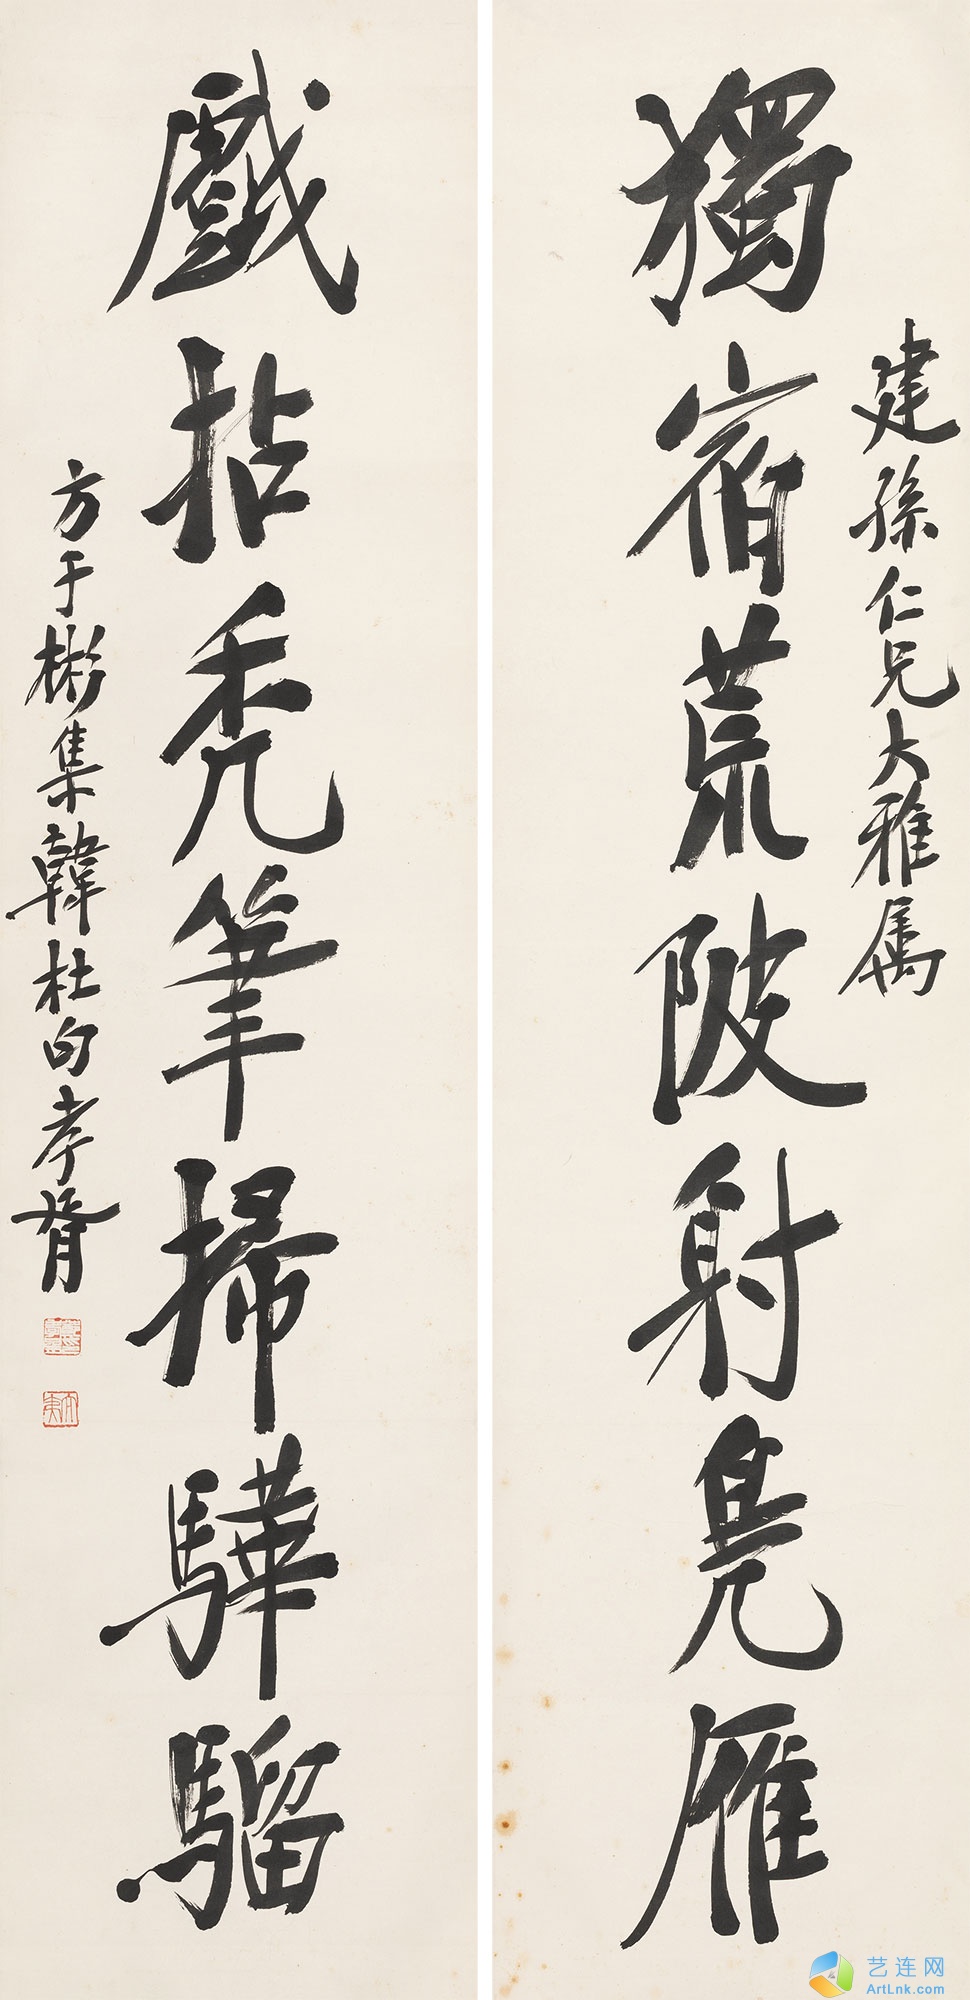 建孫仁兄大雅属
獨宿荒陂射鳧雁
戲拈禿筆掃驊騮
方于彬集韓杜句孝胥
艺连网
ArtLnk.com